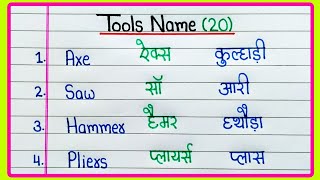 Tools Name (20)
1. Axe ऐक्स कुल्हाड़ी
2. Saw सॉ आरी
3. Hammer हैमर हथौड़ा
4. Pliers प्लायर्स प्लास